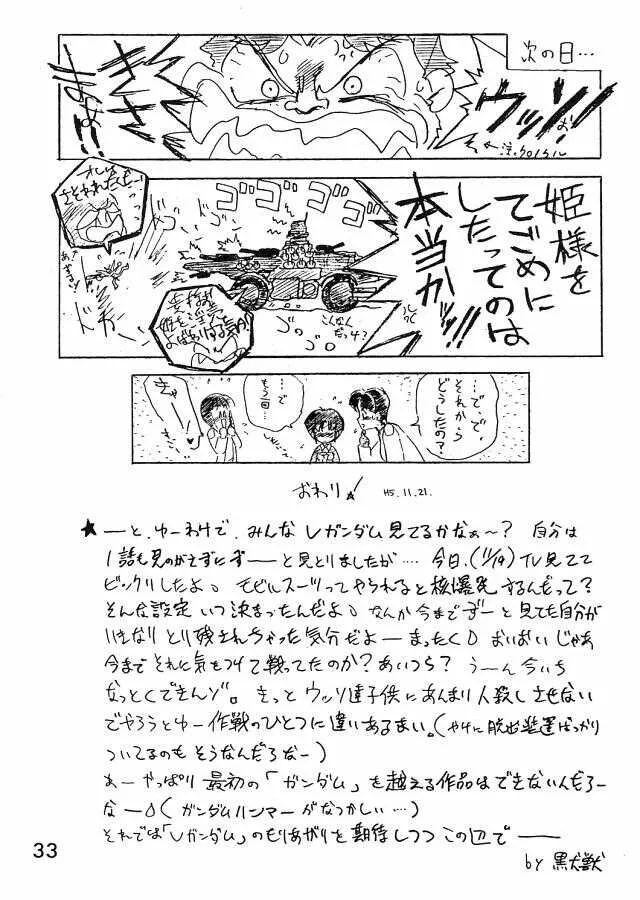 次の日…
ウッソ!!
きさまぁ!!
←注.クロノクル
姫様を
てごめに
したってのは
本当かッ!!
ゴゴゴゴ
オレは
さそわれたんだー
ドカーン
ゴゴゴ
こんなん
だっけ?
…で、で、
それから
どうしたの?
…で
もう一回…
きゃー
おわり☆! H5.11.21.
★ ーと、ゆーわけで、みんな Vガンダム見てるかなぁ〜? 自分は
1話も見のがさずにずーーと見とりましたが…. 今日、(11/19) TV見てて
ビックリしたよ。モビルスーツってやられると核爆発するんだって?
そんな設定いつ決まったんだよ。なんか今までずーと見てた自分が
いきなりとり残されちゃった気分だよー まったく。おいおいじゃあ
今までそれに気をつけて戦ってたのか?あいつら? うーん今いち
なっとくできんゾ。きっと ウッソ達子供にあんまり人殺しさせない
でやろうとゆー作戦のひとつに違いあるまい。(やけに脱出装置ばっかり
ついてるのも そうなんだろなー)
あーやっぱり 最初の「ガンダム」を越える作品はできないんだろー
なー。(ガンダムハンマーがなつかしい…)
それでは「Vガンダム」のもりあがりを期待しつつ この辺でーー
by 黒犬獣
33